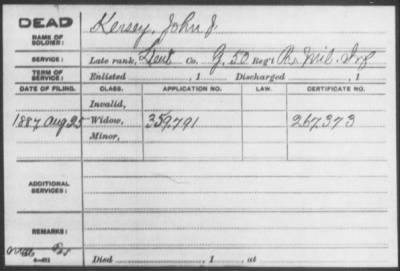 DEAD
NAME OF SOLDIER: Kersey, John J.
SERVICE: Late rank, Lieut Co. G, 50 Reg't Pa. Mil. Inf
TERM OF SERVICE: Enlisted , 1 Discharged , 1
DATE OF FILING. CLASS. APPLICATION NO. LAW. CERTIFICATE NO.
Invalid,
1887 Aug 25 Widow, 359791 267373
Minor,
ADDITIONAL SERVICES:
REMARKS:
Died , 1 , at